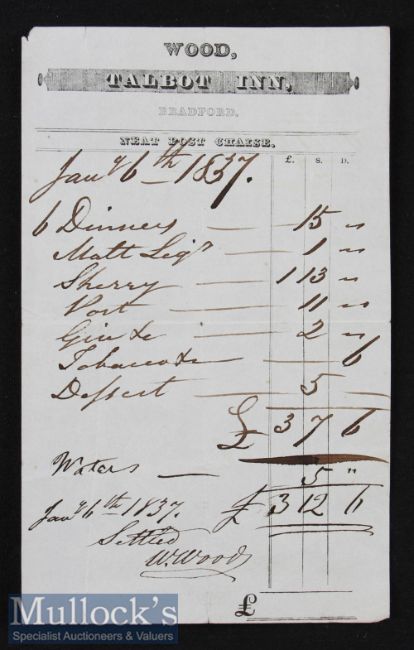 WOOD,
TALBOT INN,
BRADFORD.
NEAT POST CHAISE.
£. S. D.
Jany 6th 1837.
6 Dinners — 15 "
Malt Liqr — 1 "
Sherry — 1 13 "
Port — 11 "
Gin &c — 2 "
Tobacco &c — 6
Dessert — 5
£ 3 7 6
Waters — 5 "
Jany 6th 1837. £ 3 12 6
Settled
W. Wood
£
Mullock's
Specialist Auctioneers & Valuers